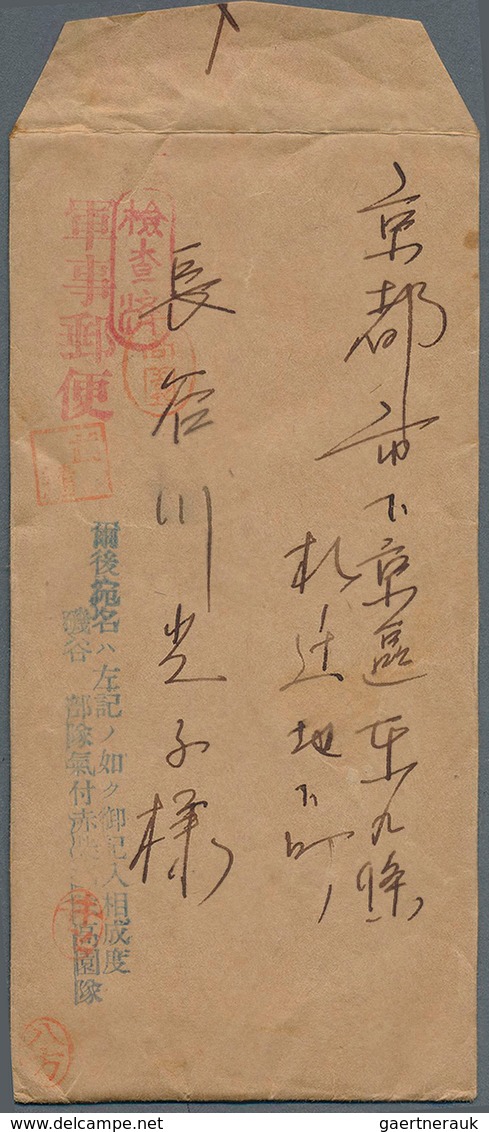 京都市下京區東九條
札辻地下町
長谷川光子様
檢查濟
軍事郵便
爾後宛名ハ左記ノ如ク御記入相成度
磯谷部隊氣付赤
高園隊
八万
DELCAMPE.COM
gaertnerauk